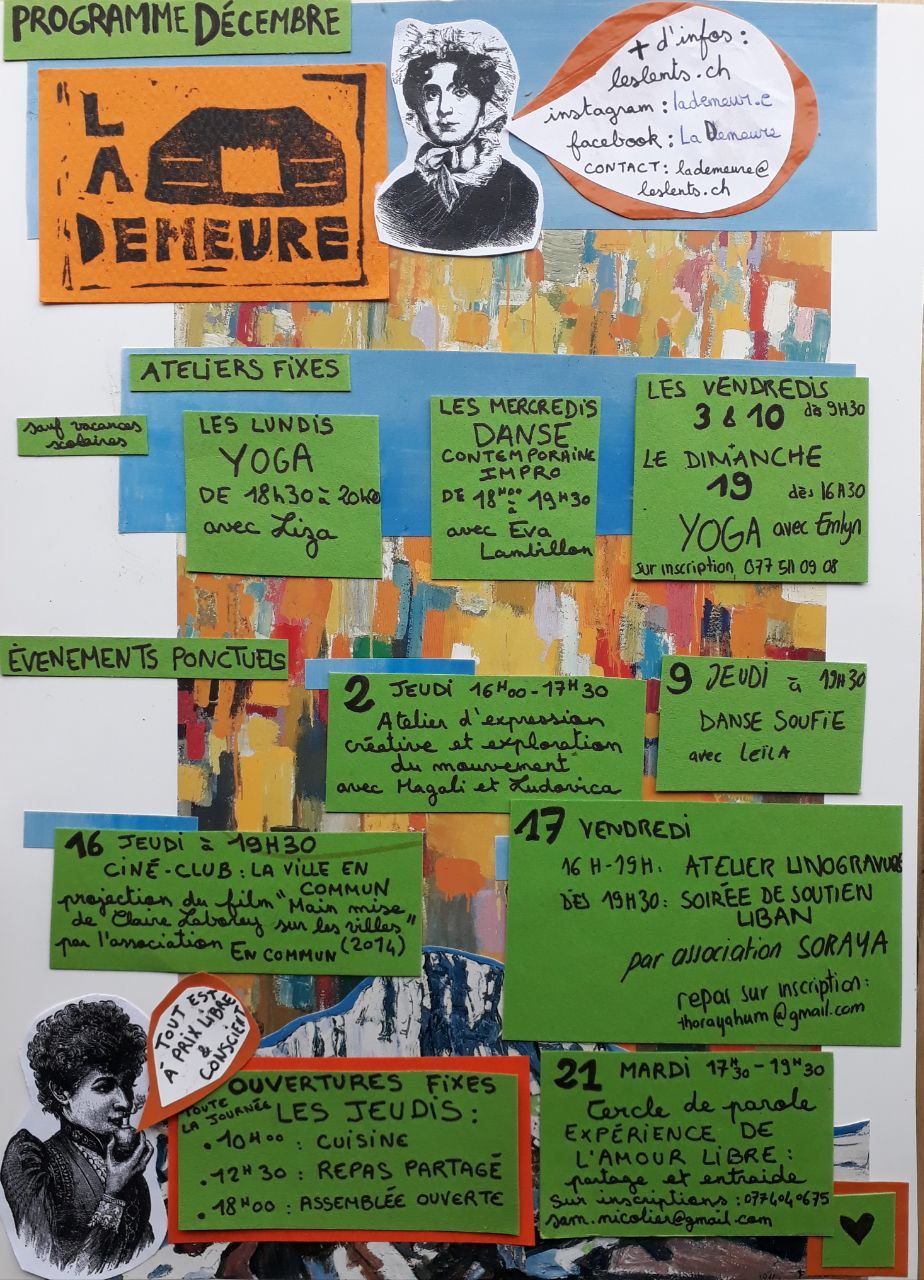 PROGRAMME DÉCEMBRE
LA
DEMEURE
+ d'infos :
leslents.ch
instagram : lademeur.e
facebook : La Demeure
CONTACT : lademeure@
leslents.ch
ATELIERS FIXES
sauf vacances
scolaires
LES LUNDIS
YOGA
DE 18h30 à 20h00
avec Liza
LES MERCREDIS
DANSE
CONTEMPORAINE
IMPRO
DE 18H00 à 19H30
avec Eva
Lambillon
LES VENDREDIS
3 & 10 dès 9H30
LE DIMANCHE
19 dès 16H30
YOGA avec Emlyn
sur inscription, 077 511 09 08
ÉVENEMENTS PONCTUELS
2 JEUDI 16H00-17H30
Atelier d'expression
créative et exploration
du mouvement
avec Magali et Ludovica
9 JEUDI à 19H30
DANSE SOUFIE
avec LEILA
16 JEUDI à 19H30
CINÉ-CLUB : LA VILLE EN
COMMUN
projection du film "Main mise
de Claire Laborey sur les villes"
par l'association EN COMMUN (2014)
17 VENDREDI
16H-19H : ATELIER LINOGRAVURE
DÈS 19H30 : SOIRÉE DE SOUTIEN
LIBAN
par association SORAYA
repas sur inscription :
thorayahum@gmail.com
TOUT EST
À PRIX LIBRE
&
CONSCIENT
OUVERTURES FIXES
TOUTE
LA JOURNÉE
LES JEUDIS :
. 10H00 : CUISINE
. 12H30 : REPAS PARTAGÉ
. 18H00 : ASSEMBLÉE OUVERTE
21 MARDI 17H30-19H30
Cercle de parole
EXPÉRIENCE DE
L'AMOUR LIBRE :
partage et entraide
sur inscriptions : 0774040675
sam.nicolier@gmail.com